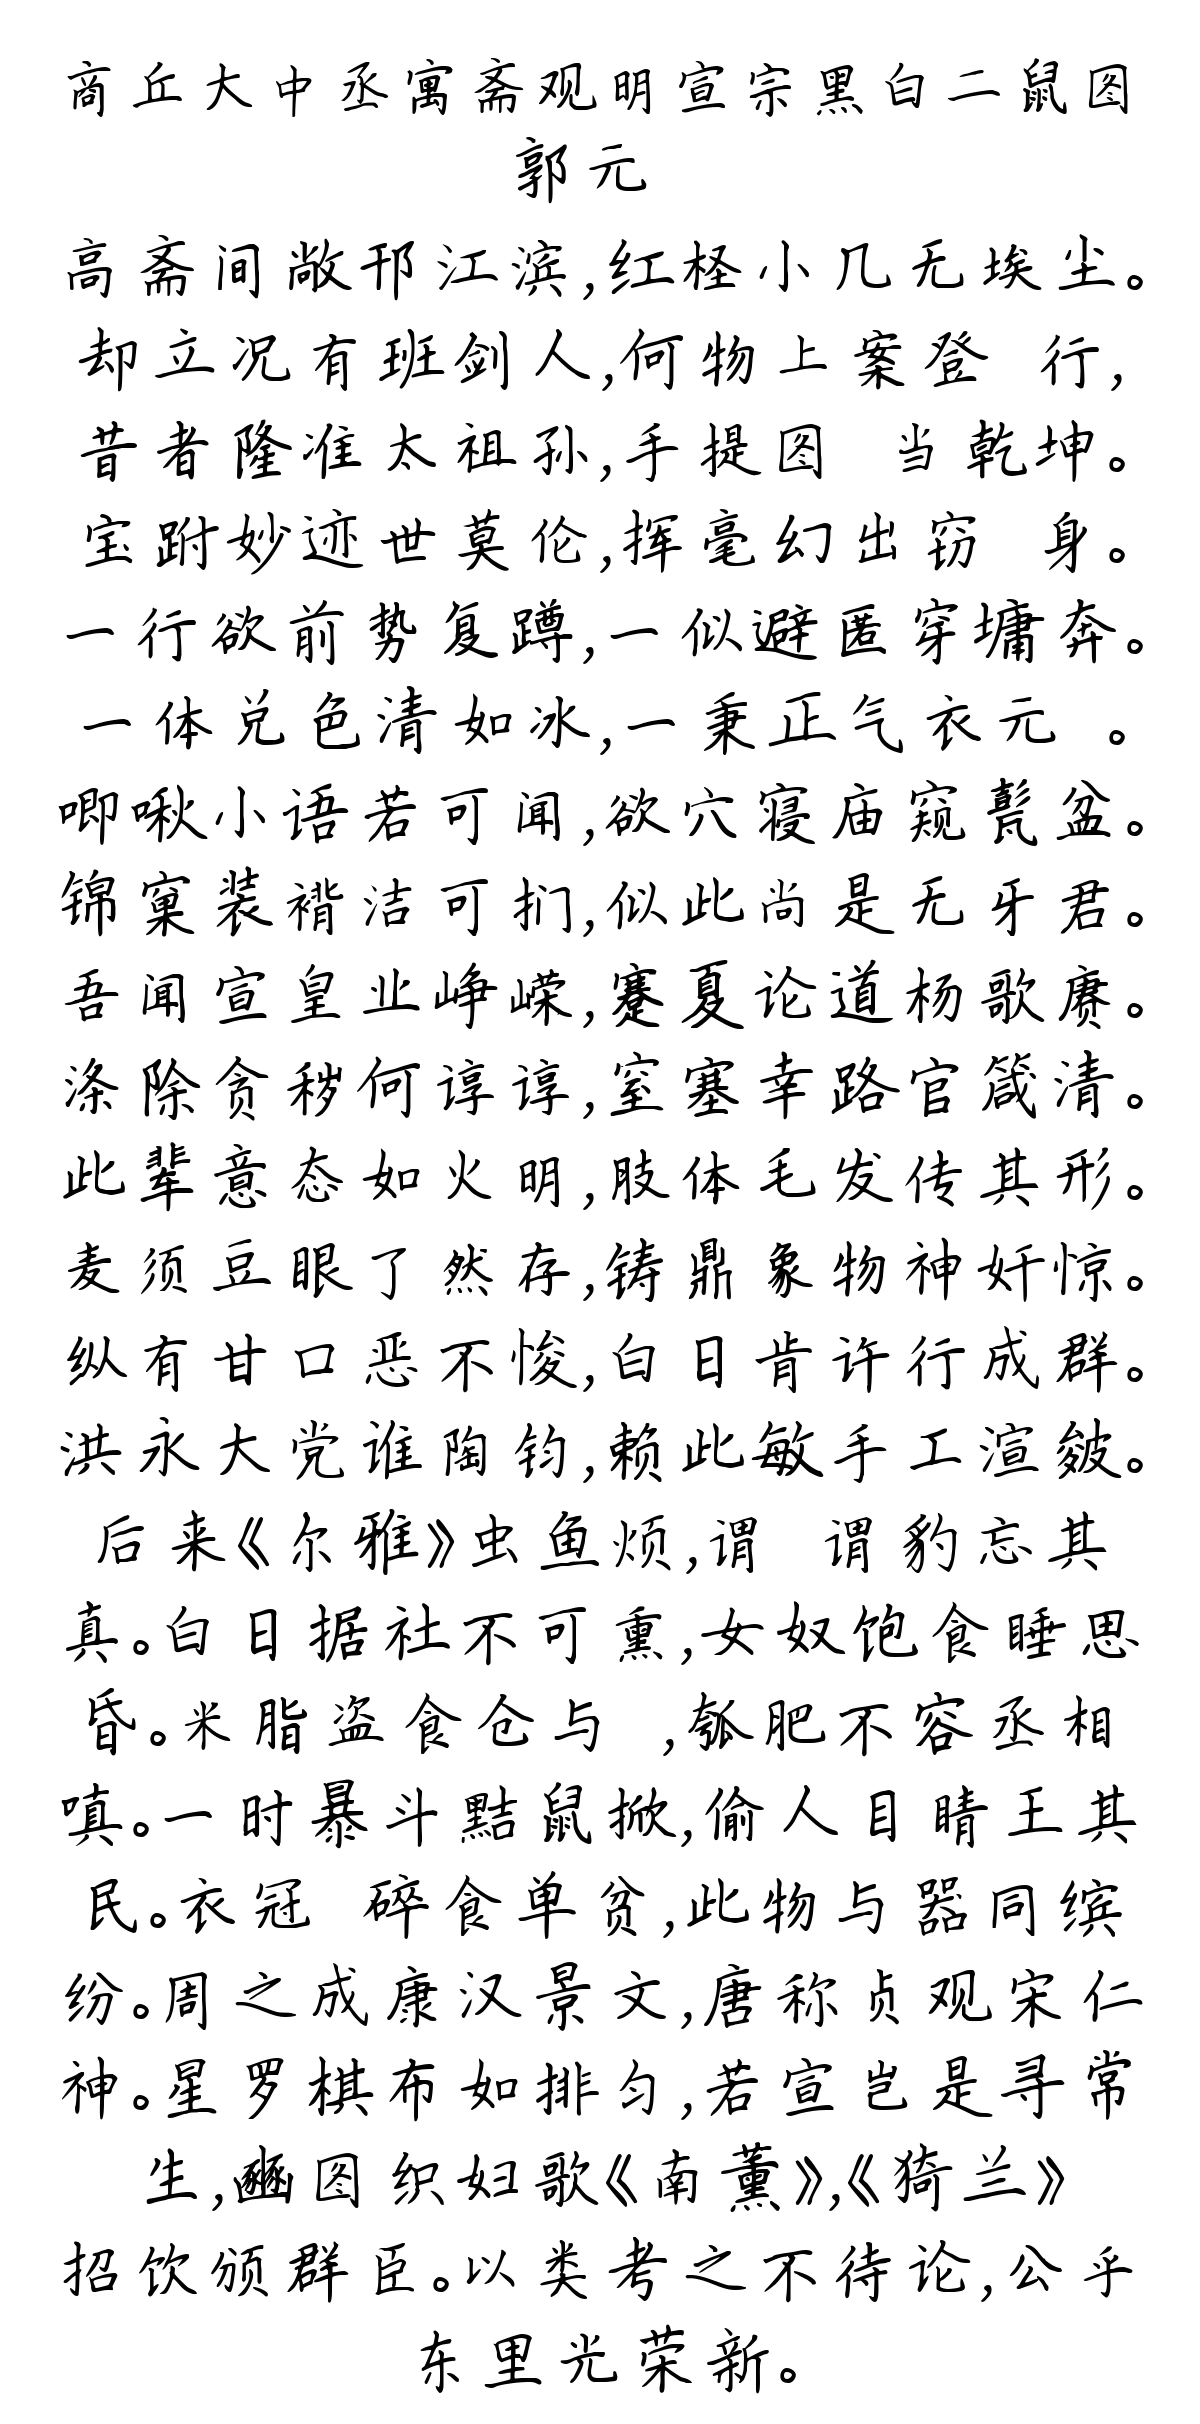 商丘大中丞寓斋观明宣宗黑白二鼠图
郭元
高斋间敞邗江滨,红柽小几无埃尘。
却立况有班剑人,何物上案登 行,
昔者隆准太祖孙,手提图 当乾坤。
宝跗妙迹世莫伦,挥毫幻出窃 身。
一行欲前势复蹲,一似避匿穿墉奔。
一体兑色清如冰,一秉正气衣元 。
唧啾小语若可闻,欲穴寝庙窥甏盆。
锦窠装褙洁可扪,似此尚是无牙君。
吾闻宣皇业峥嵘,蹇夏论道杨歌赓。
涤除贪秽何谆谆,窒塞幸路官箴清。
此辈意态如火明,肢体毛发传其形。
麦须豆眼了然存,铸鼎象物神奸惊。
纵有甘口恶不悛,白日肯许行成群。
洪永大党谁陶钧,赖此敏手工渲皴。
后来《尔雅》虫鱼烦,谓 谓豹忘其
真。白日据社不可熏,女奴饱食睡思
昏。米脂盗食仓与 ,瓠肥不容丞相
嗔。一时暴斗黠鼠掀,偷人目睛王其
民。衣冠 碎食单贫,此物与器同缤
纷。周之成康汉景文,唐称贞观宋仁
神。星罗棋布如排匀,若宣岂是寻常
生,豳图织妇歌《南薰》,《猗兰》
招饮颁群臣。以类考之不待论,公乎
东里光荣新。